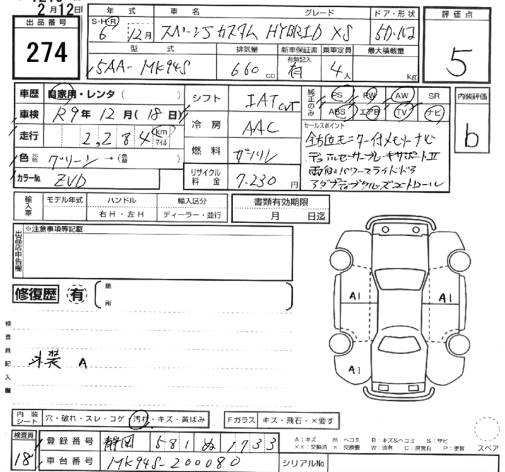 2月12日
出品番号
274
年式 車名 グレード ドア・形状
S・H・R 6年 12月 スペーシアカスタム HYBRID XS 5D-ハコ
型式 排気量 新車保証書 乗車定員 最大積載量
5AA-MK94S 660cc 有無記入 有 4人
評価点
5
内装評価
b
車歴 自家用・レンタ( )
車検 R9年 12月(18日)
走行 2,284 km マイル
色 グリーン →
カラーNo. ZVD
シフト IAT CVT
冷房 AAC
燃料 ガソリン
リサイクル料金 7,230円
純正のみ PS PW AW SR
ABS エアB TV ナビ
セールスポイント
全方位モニター付メモリーナビ
デュアルセンサーブレーキサポートII
両側パワースライドドア
アダプティブクルーズコントロール
輸入車 モデル年式 ハンドル 輸入区分
年 右H・左H ディーラー・並行
書類有効期限
月 日迄
出品店申告欄
※注意事項等記載
修復歴 有 箇所
検査員記入欄
A1 A1
内装 シート 穴・破れ・スレ・コゲ 汚れ・キズ・黄ばみ
Fガラス キズ・飛石・×要す
検査員 18
登録番号 静岡 581 ぬ 1733
車台番号 MK94S-200080
シリアルNo.
A:キズ U:ヘコミ B:キズ&ヘコミ S:サビ
××:交換済 ×:交換要 W:波有 C:腐食有 P:要塗
スペア